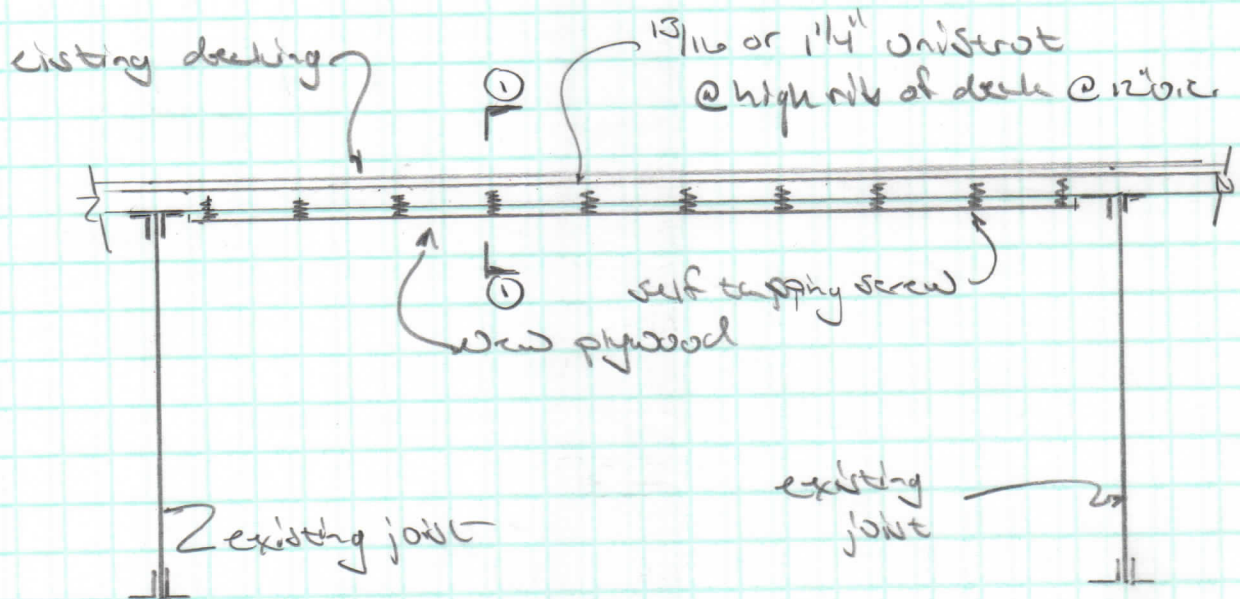 existing decking
13/16 or 1 1/4" unistrut
@ high rib of deck @ 12" o.c.
1
1
self tapping screw
new plywood
existing joist
existing
joist